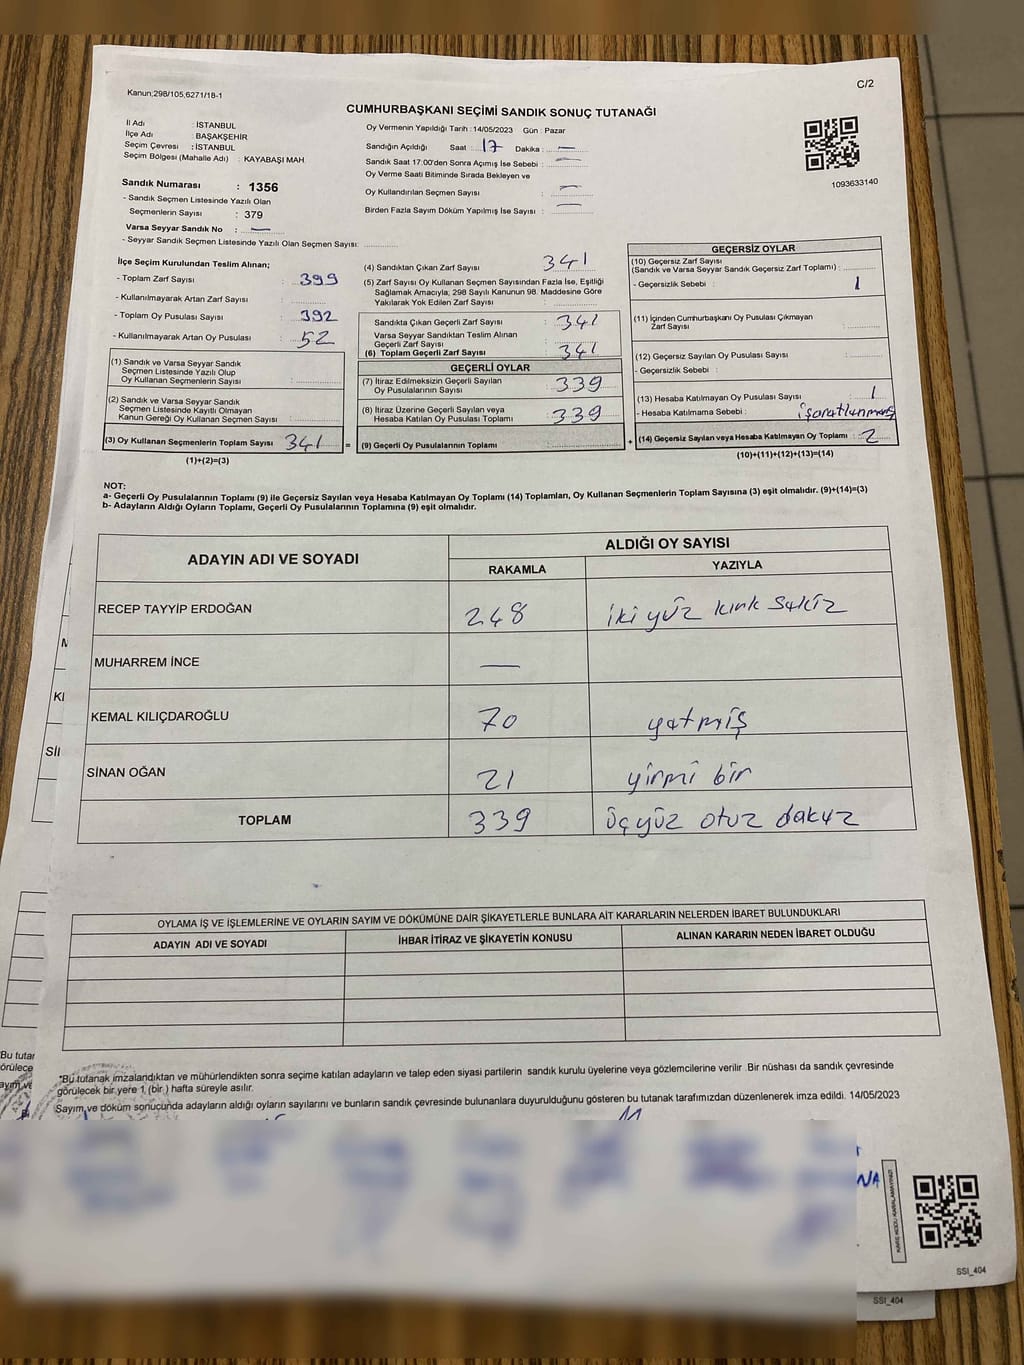 Kanun;298/105,6271/18-1
C/2
CUMHURBAŞKANI SEÇİMİ SANDIK SONUÇ TUTANAĞI
İl Adı : İSTANBUL
İlçe Adı : BAŞAKŞEHİR
Seçim Çevresi : İSTANBUL
Seçim Bölgesi (Mahalle Adı) : KAYABAŞI MAH.
Sandık Numarası : 1356
- Sandık Seçmen Listesinde Yazılı Olan
Seçmenlerin Sayısı : 379
Varsa Seyyar Sandık No : —
- Seyyar Sandık Seçmen Listesinde Yazılı Olan Seçmen Sayısı:
Oy Vermenin Yapıldığı Tarih : 14/05/2023 Gün : Pazar
Sandığın Açıldığı Saat : 17 Dakika : —
Sandık Saat 17:00'den Sonra Açımış İse Sebebi : —
Oy Verme Saati Bitiminde Sırada Bekleyen ve
Oy Kullandırılan Seçmen Sayısı : —
Birden Fazla Sayım Döküm Yapılmış İse Sayısı : —
1093633140
İlçe Seçim Kurulundan Teslim Alınan;
- Toplam Zarf Sayısı : 399
- Kullanılmayarak Artan Zarf Sayısı :
- Toplam Oy Pusulası Sayısı : 392
- Kullanılmayarak Artan Oy Pusulası : 52
(1) Sandık ve Varsa Seyyar Sandık
Seçmen Listesinde Yazılı Olup
Oy Kullanan Seçmenlerin Sayısı :
(2) Sandık ve Varsa Seyyar Sandık
Seçmen Listesinde Kayıtlı Olmayan
Kanun Gereği Oy Kullanan Seçmen Sayısı :
(3) Oy Kullanan Seçmenlerin Toplam Sayısı 341 =
(1)+(2)=(3)
(4) Sandıktan Çıkan Zarf Sayısı : 341
(5) Zarf Sayısı Oy Kullanan Seçmen Sayısından Fazla İse, Eşitliği
Sağlamak Amacıyla, 298 Sayılı Kanunun 98. Maddesine Göre
Yakılarak Yok Edilen Zarf Sayısı :
Sandıkta Çıkan Geçerli Zarf Sayısı : 341
Varsa Seyyar Sandıktan Teslim Alınan
Geçerli Zarf Sayısı :
(6) Toplam Geçerli Zarf Sayısı : 341
GEÇERLİ OYLAR
(7) İtiraz Edilmeksizin Geçerli Sayılan
Oy Pusulalarının Sayısı : 339
(8) İtiraz Üzerine Geçerli Sayılan veya
Hesaba Katılan Oy Pusulası Toplamı : 339
(9) Geçerli Oy Pusulalarının Toplamı : +
GEÇERSİZ OYLAR
(10) Geçersiz Zarf Sayısı
(Sandık ve Varsa Seyyar Sandık Geçersiz Zarf Toplamı) :
- Geçersizlik Sebebi : 1
(11) İçinden Cumhurbaşkanı Oy Pusulası Çıkmayan
Zarf Sayısı :
(12) Geçersiz Sayılan Oy Pusulası Sayısı :
- Geçersizlik Sebebi :
(13) Hesaba Katılmayan Oy Pusulası Sayısı : 1
- Hesaba Katılmama Sebebi : işaratlanmamış
(14) Geçersiz Sayılan veya Hesaba Katılmayan Oy Toplamı : 2
(10)+(11)+(12)+(13)=(14)
NOT:
a- Geçerli Oy Pusulalarının Toplamı (9) ile Geçersiz Sayılan veya Hesaba Katılmayan Oy Toplamı (14) Toplamları, Oy Kullanan Seçmenlerin Toplam Sayısına (3) eşit olmalıdır. (9)+(14)=(3)
b- Adayların Aldığı Oyların Toplamı, Geçerli Oy Pusulalarının Toplamına (9) eşit olmalıdır.
ADAYIN ADI VE SOYADI ALDIĞI OY SAYISI
RAKAMLA YAZIYLA
RECEP TAYYİP ERDOĞAN 248 iki yüz kırk sakiz
MUHARREM İNCE —
KEMAL KILIÇDAROĞLU 70 yatmiş
SİNAN OĞAN 21 yirmi bir
TOPLAM 339 üçyüz otuz dakuz
OYLAMA İŞ VE İŞLEMLERİNE VE OYLARIN SAYIM VE DÖKÜMÜNE DAİR ŞİKAYETLERLE BUNLARA AİT KARARLARIN NELERDEN İBARET BULUNDUKLARI
ADAYIN ADI VE SOYADI İHBAR İTİRAZ VE ŞİKAYETİN KONUSU ALINAN KARARIN NEDEN İBARET OLDUĞU
*Bu tutanak imzalandıktan ve mühürlendikten sonra seçime katılan adayların ve talep eden siyasi partilerin sandık kurulu üyelerine veya gözlemcilerine verilir .Bir nüshası da sandık çevresinde
görülecek bir yere 1 (bir ) hafta süreyle asılır.
Sayım ve döküm sonucunda adayların aldığı oyların sayılarını ve bunların sandık çevresinde bulunanlara duyurulduğunu gösteren bu tutanak tarafımızdan düzenlenerek imza edildi. 14/05/2023
SSI_404
SSI_404